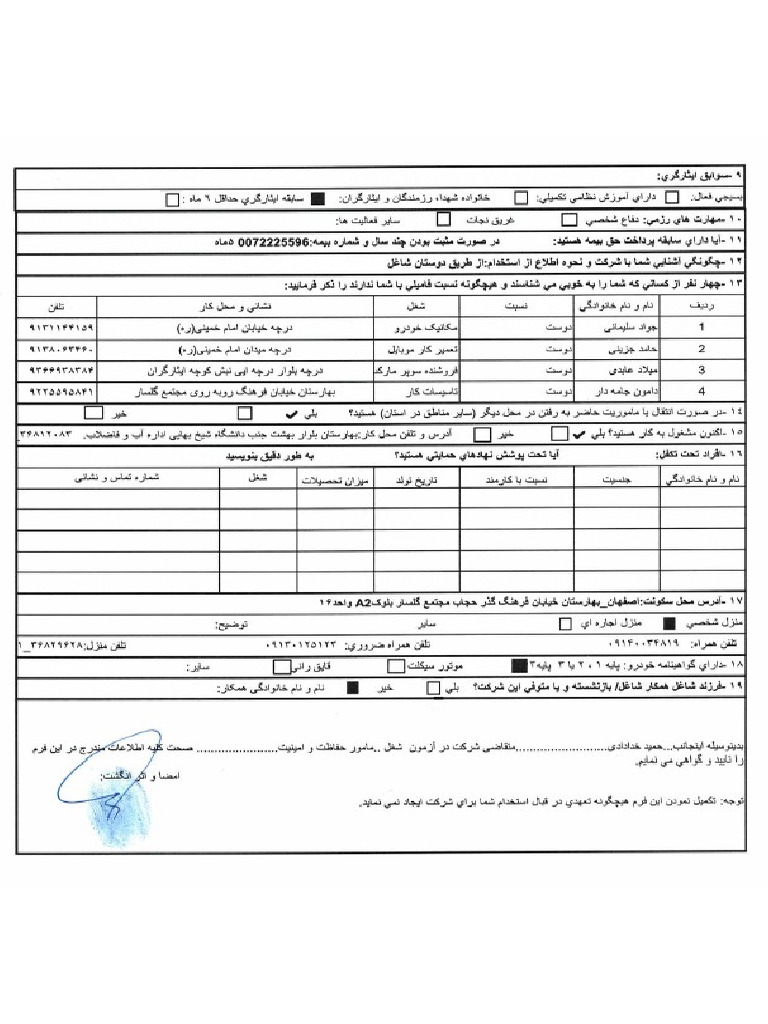 ۹ -سوابق ایثارگري:
بسیجي فعال: دارای آموزش نظامي تکمیلی: خانواده شهداء رزمندگان و ایثارگران: سابقه ایثارگري حداقل ۶ ماه :
۱۰ -مهارت هاي رزمی: دفاع شخصي غریق نجات سایر فعالیت ها:
۱۱ -آیا دارای سابقه پرداخت حق بیمه هستید: در صورت مثبت بودن چند سال و شماره بیمه: 0072225596 ۵ماه
۱۲ -چگونگي آشنایي شما با شرکت و نحوه اطلاع از استخدام:از طریق دوستان شاغل
۱۳ -چهار نفر از کساني که شما را به خوبي مي شناسند و هیچگونه نسبت فامیلي با شما ندارند را ذکر فرمایید:
ردیف نام و نام خانوادگي نسبت شغل نشاني و محل کار تلفن
1 جواد سلیمانی دوست مکانیک خودرو درچه خیابان امام خمینی(ره) ۹۱۳۱۱۴۴۱۵۹
2 حامد جزینی دوست تعمیر کار موبایل درچه میدان امام خمینی(ره) ۹۱۳۸۰۶۳۴۶۰
3 میلاد عابدی دوست فروشنده سوپر مارکت درچه بلوار درچه ایی نبش کوچه ایثارگران ۹۳۶۶۹۳۸۳۸۴
4 دامون جامه دار دوست تاسیسات کار بهارستان خیابان فرهنگ روبه روی مجتمع گلسار ۹۲۳۵۵۹۵۸۴۱
۱۴ -در صورت انتقال یا ماموریت حاضر به رفتن در محل دیگر (سایر مناطق در استان) هستید؟ بلي خیر
۱۵ -اکنون مشغول به کار هستید؟ بلي خیر آدرس و تلفن محل کار:بهارستان بلوار بهشت جنب دانشگاه شیخ بهایی اداره آب و فاضلاب. ۳۶۸۱۲۰۸۳
۱۶ -افراد تحت تکفل: آیا تحت پوشش نهادهاي حمایتي هستید؟ به طور دقیق بنویسید
نام و نام خانوادگي جنسیت نسبت با کارمند تاریخ تولد میزان تحصیلات شغل شماره تماس و نشاني
۱۷ -آدرس محل سکونت:اصفهان_بهارستان خیابان فرهنگ گذر حجاب مجتمع گلسار بلوکA2 واحد۱۶
منزل شخصي منزل اجاره اي سایر توضیح:
تلفن همراه: ۰۹۱۴۰۰۳۴۸۱۹ تلفن همراه ضروري: ۰۹۱۳۰۱۲۵۱۲۳ تلفن منزل:۳۶۸۲۹۶۲۸_۱
۱۸ -دارای گواهینامه خودرو: پایه ۱، ۲ یا ۳ پایه۳ موتور سیکلت قایق رانی سایر:
۱۹ -فرزند شاغل همکار شاغل/ بازنشسته و یا متوفي این شرکت؟ بلي خیر نام و نام خانوادگی همکار:
بدینوسیله اینجانب..حمید خدادادی..................متقاضي شرکت در آزمون شغل ..مامور حفاظت و امینیت................. صحت کلیه اطلاعات مندرج در این فرم
را تایید و گواهي مي نمایم.
امضا و اثر انگشت:
توجه: تکمیل نمودن این فرم هیچگونه تعهدي در قبال استخدام شما براي شرکت ایجاد نمي نماید.